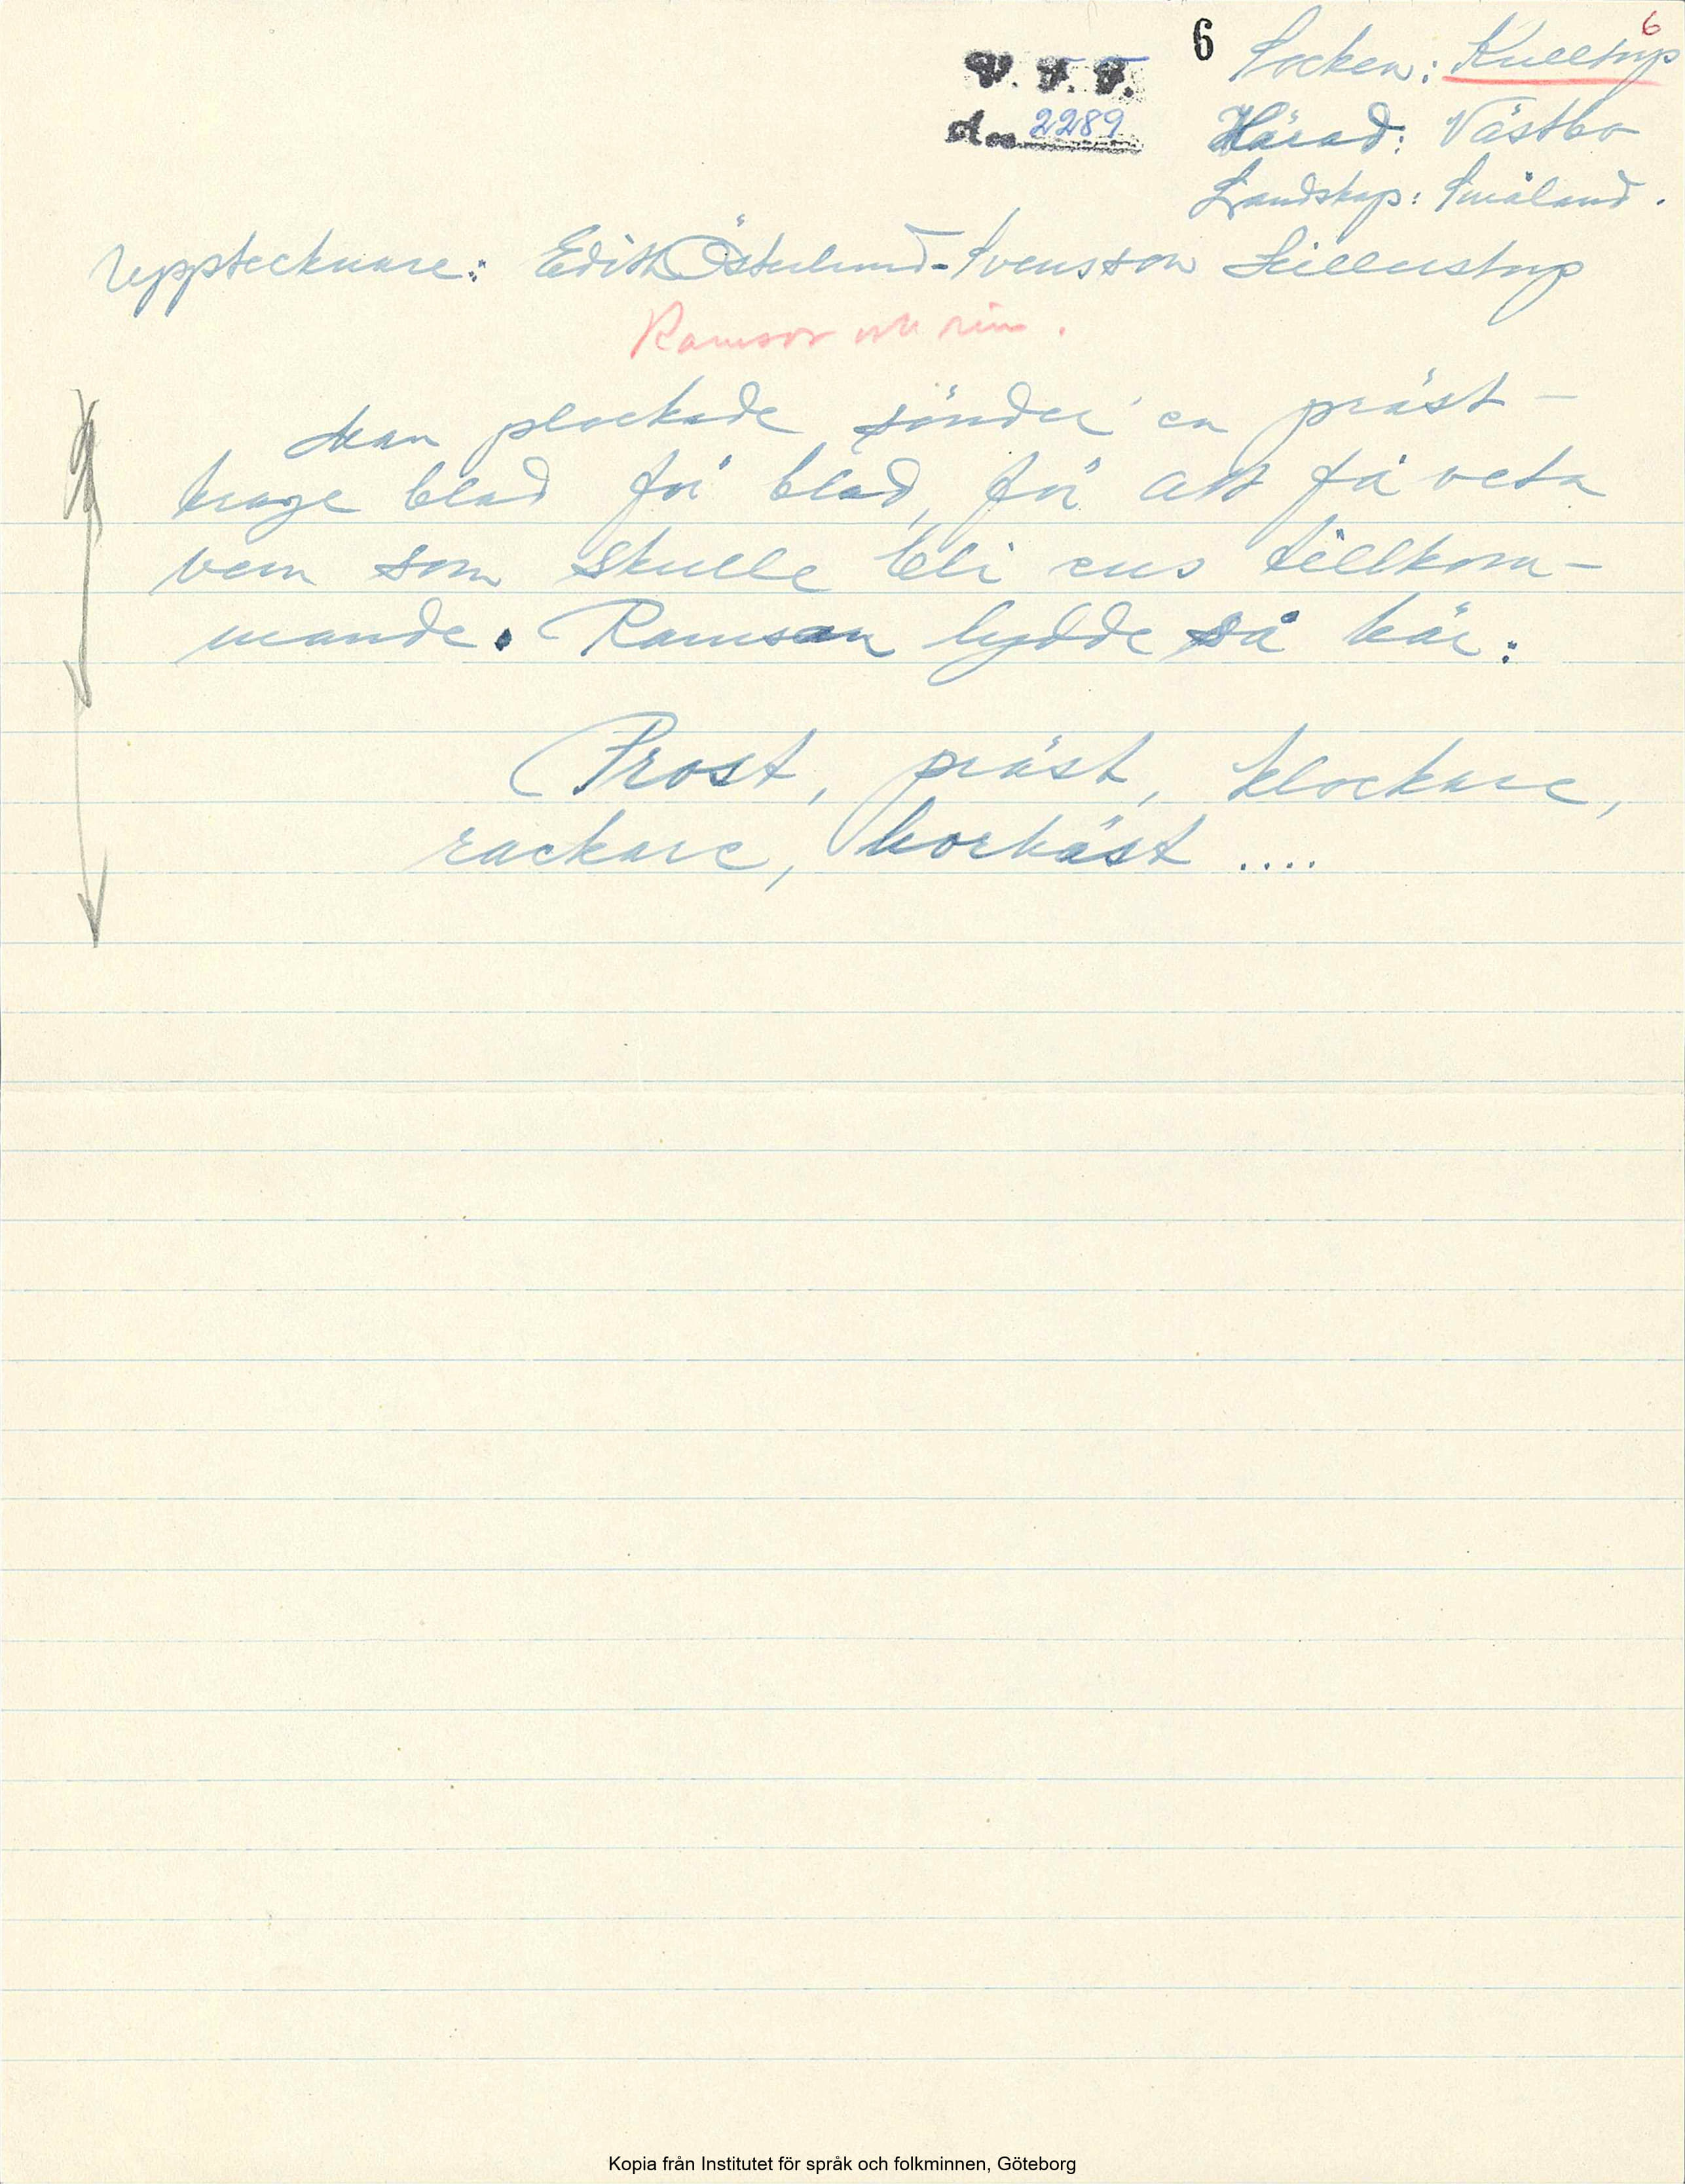 6
6 Socken: Kulltorp
V. F. F.
Acc. 2289
Härad: Västbo
Landskap: Småland.
Upptecknare: Edith Österlund-Svensson Hillerstorp
Ramsor och rim.
Man plockade sönder en präst-
krage blad för blad, för att få veta
vem som skulle bli ens tillkom-
mande. Ramsan lydde så här:
Prost, präst, klockare,
rackare, horkäst ....
Kopia från Institutet för språk och folkminnen, Göteborg